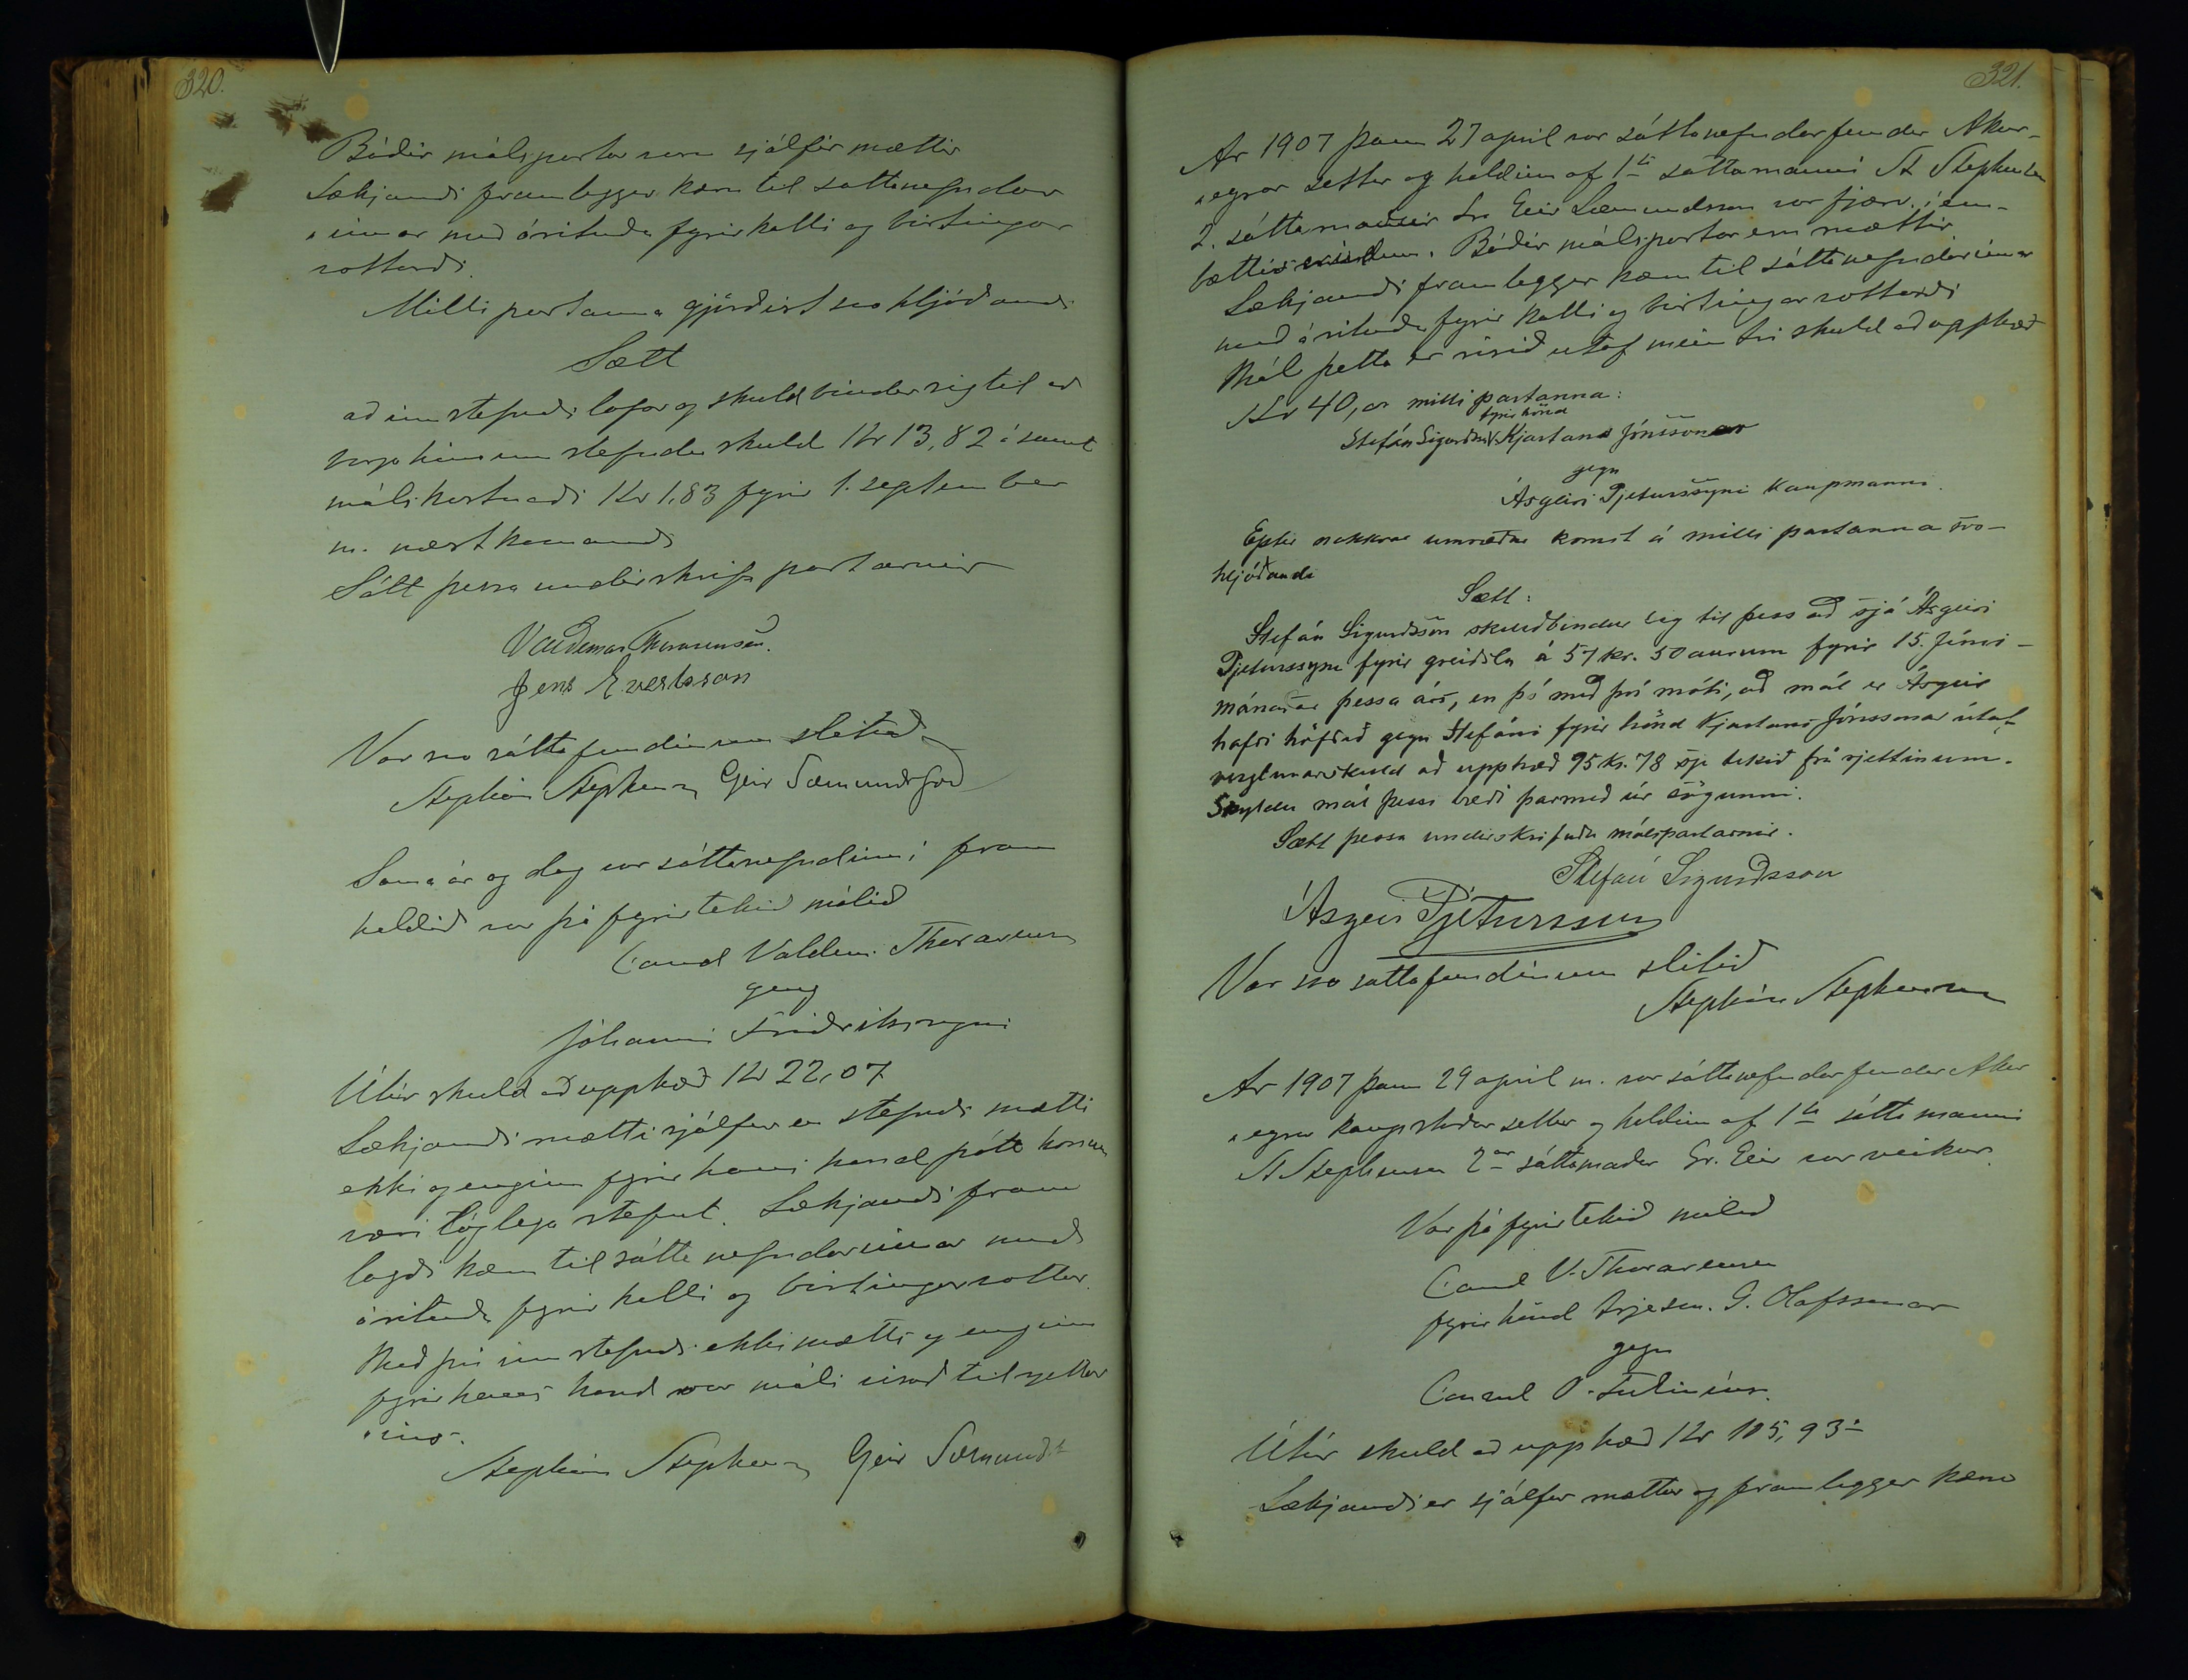 320.
Báðir málspartar eru sjálfir mættir
Sækjandi framleggur kæru til sáttanefndar
innar með árituðu fyrirkalli og birtingar
vottorði.
Milli partanna gjörðist svo hljóðandi
Sætt
að inn stefndi lofar og skuldbindur sig til að
borga hinum stefnda skuld Kr 13,82 ásamt
málskostnaði Kr 1,83 fyrir 1. september
m. næstkomandi
Sátt þessa undirskrifa partarnir
Valdemar Thorarensen.
Jens Evertsson
Var svo sáttafundinum slitið
Stephán Stephensen Geir Sæmundsson
Sama ár og dag var sáttanefndinni fram
haldið var þá fyrirtekið málið
Cand Valdem. Thorarensen
gegn
Jóhanni Friðrikssyni
Útúr skuld að upphæð Kr 22,07
Sækjandi mætti sjálfur en stefndi mætti
ekki og enginn fyrir hans hönd þótt honum
væri löglega stefnt. Sækjandi fram
lagði kæru til sáttanefndarinnar með
árituðu fyrirkalli og birtingarvottor.
Með því inn stefndi ekki mætti og enginn
fyrir hans hönd var máli vísað til rjettar
ins.
Stephán Stephensen Geir Sæmundss
321.
Ár 1907 þann 27 april var sáttanefndarfundur Akur-
eyrar settur og haldinn af 1ta sáttamanni St Stephensen
2. sáttamaður Sr. Geir Sæmundsson var fjærv. í em-
bættis erindum. Báðir málspartar eru mættir
Sækjandi framleggur kæru til sáttanefndarinnar
með árituðu fyrirkalli og birtingarvottorði
Mál þetta er risið útaf meintri skuld að upphæð
Kr 40, a milli partanna:
fyrir hönd
Stefán Sigurðss. v. Kjartans Jónssonar
gegn
Ásgeiri Pjeturssyni kaupmanni.
Eptir nokkrar umræður komst á milli partanna svo-
hljóðandi
Sætt:
Stefán Sigurðsson skuldbindur sig til þess að sjá Ásgeiri
Pjeturssyni fyrir greiðslu á 57 kr. 50 aurum fyrir 15. Júní-
mánaðar þessa árs, en þó með því móti, að mál er Ásgeir
hafði höfðað gegn Stefáni fyrir hönd Kjartans Jónssonar útaf
verzlunarskuld að upphæð 95 kr. 78 sje tekið frá rjettinum.
Skyldu mál þessi bæði þarmeð úr sögunni.
Sætt þessa undirskrifuðu málspartarnir.
Stefán Sigurðsson
Ásgeir Pjetursson
Var svo sáttafundinum slitið
Stephán Stephensen
Ár 1907 þann 29 april m. var sáttanefndarfundur Akur
eyrar kaupstaðar settur og haldinn af 1ta sáttamanni
St Stephensen 2ar sáttamaður Sr. Geir var veikur.
Var þá fyrirtekið málið
Cand V. Thorarensen
fyrir hönd G. Olafssonar
gegn
Consul O. Tulinius.
Útúr skuld að upphæð Kr 105,93
Sækjandi er sjálfur mættur og framleggur kæru